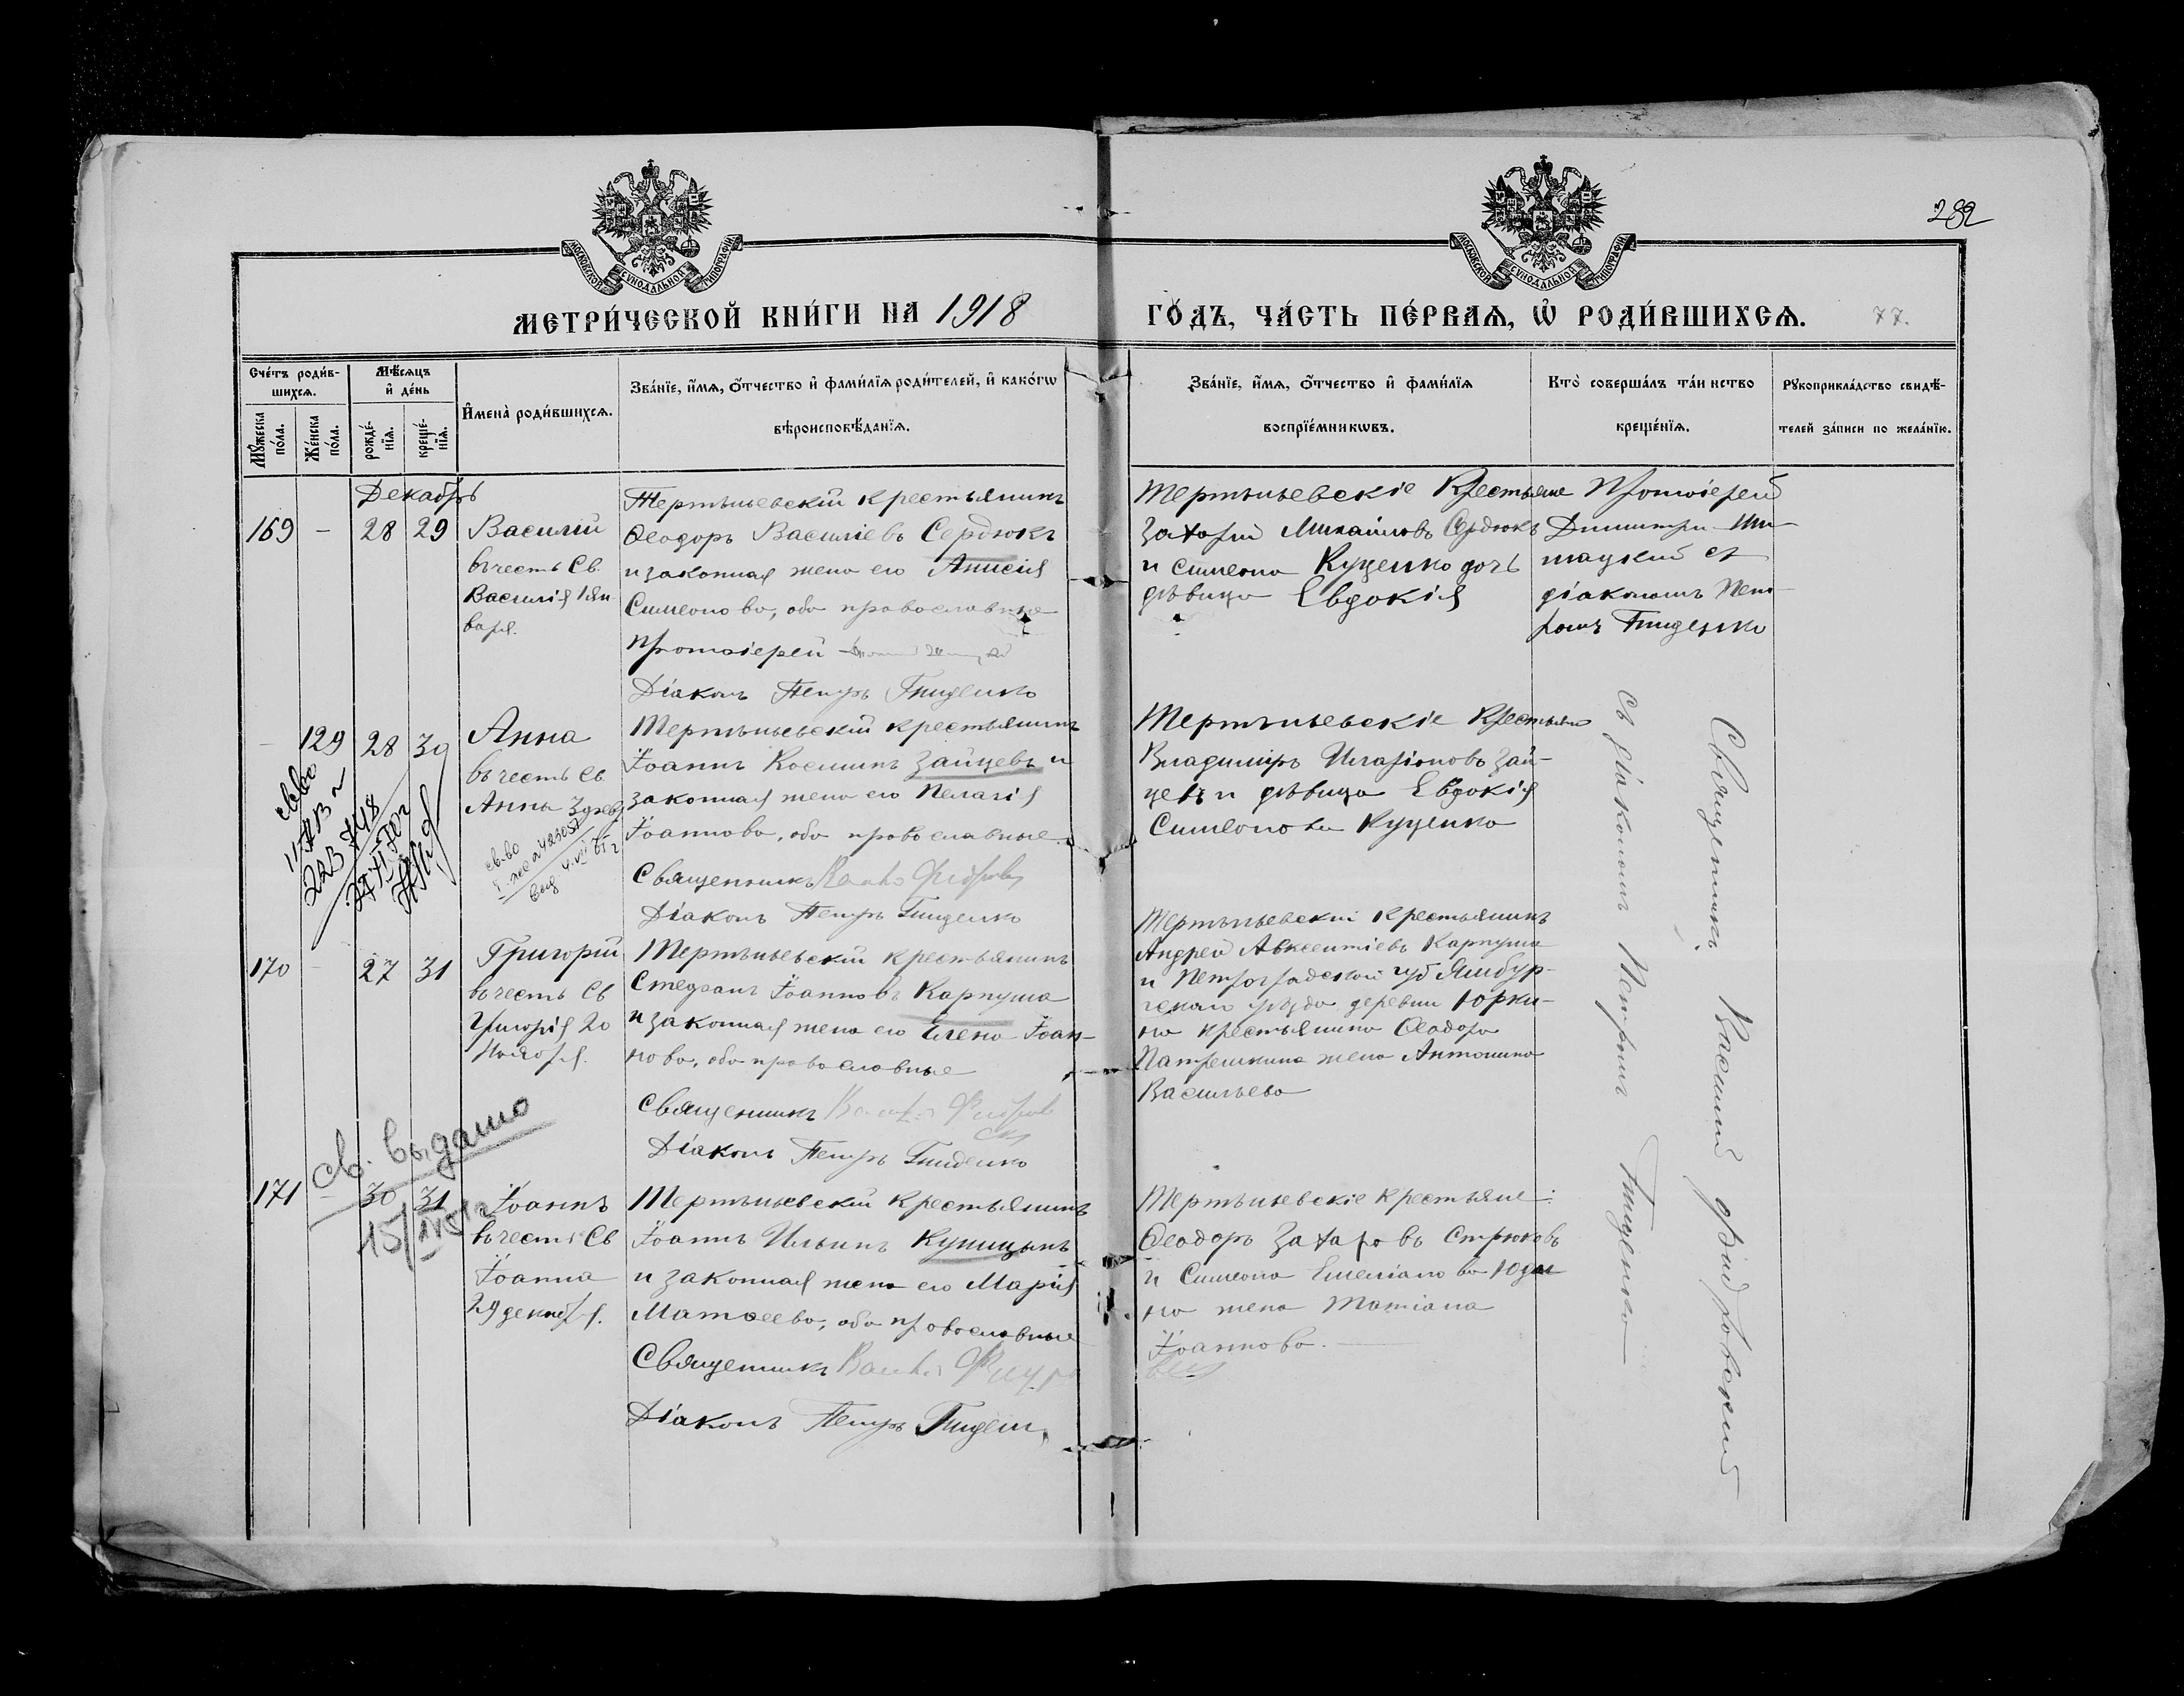 МОСКОВСКОЙ СѴНОДАЛЬНОЙ ТИПОГРАФІИ
МОСКОВСКОЙ СѴНОДАЛЬНОЙ ТИПОГРАФІИ
282
МЕТРИ́ЧЕСКОЙ КНИ́ГИ НА 1918
ГО́ДЪ, ЧА́СТЬ ПЕ́РВАѦ, Ѡ҆ РОДИ́ВШИХСѦ.
77.
Сче́тъ роди́в-
шихсѧ.
Мꙋ́жеска по́ла.
Же́нска по́ла.
Мѣ́сѧцъ
и҆ де́нь
рожде́-
нїѧ.
креще́-
нїѧ.
И҆мена̀ роди́вшихсѧ.
Зва́нїе, и҆́мѧ, ѻ҆́тчество и҆ фами́лїѧ роди́телей, и҆ како́гѡ
вѣроисповѣ́данїѧ.
Зва́нїе, и҆́мѧ, ѻ҆́тчество и҆ фами́лїѧ
воспрїе́мникѡвъ.
Кто̀ соверша́лъ та́инство
креще́нїѧ.
Рꙋкоприкла́дство свидѣ́-
телей за́писи по жела́нїю.
Декабрь
169 — 28 29
Василій
въ честь Св.
Василія 1 ян-
варя.
Тертъневскій крестьянинъ
Ѳеодоръ Василіевъ Сердюкъ
и законная жена его Анисія
Симеонова, оба православные
Протоіерей
Діаконъ Петръ Гниденко
Тертъневскіе Крестьяне
Захарій Михаиловъ Сердюкъ
и Симеона Куценко дочь
дѣвица Евдокія
Протоіерей
Димитрій
съ
діакономъ Пет-
ромъ Гниденко
129 28 30
Анна
въ честь Св.
Анны 3 фев.
Тертъневскій крестьянинъ
Іоаннъ Косминъ Зайцевъ и
законная жена его Пелагія
Іоаннова, оба православные
Священникъ
Діаконъ Петръ Гниденко
Тертъневскіе Крестьяне
Владиміръ Иларіоновъ Зай-
цевъ и дѣвица Евдокія
Симеонова Куценко
170 — 27 31
Григорій
въ честь Св
Григорія 20
Ноября.
Тертъневскій крестьянинъ
Стефанъ Іоанновъ Карпуша
и законная жена его Елена Іоан-
нова, оба православные
Священникъ
Діаконъ Петръ Гниденко
Тертъневскій Крестьянинъ
Андрей Авксентіевъ Карпуша
и Петроградской губ Ямбур-
гскаго уѣзда деревни Юрки-
на крестьянина Ѳеодора
жена Антонина
Васильева
св. выдано
171 — 30 31
Іоаннъ
въ честь Св
Іоанна
29 декабря.
Тертъневскій Крестьянинъ
Іоаннъ Ильинъ Куницынъ
и законная жена его Марія
Матѳеева, оба православные
Священникъ
Діаконъ Петръ
Тертъневскіе Крестьяне:
Ѳеодоръ Захаровъ Стрюковъ
и Симеона Емеліанова
жена Татіана
Іоаннова.
Священникъ Василій
съ діакономъ Петромъ Гниденко